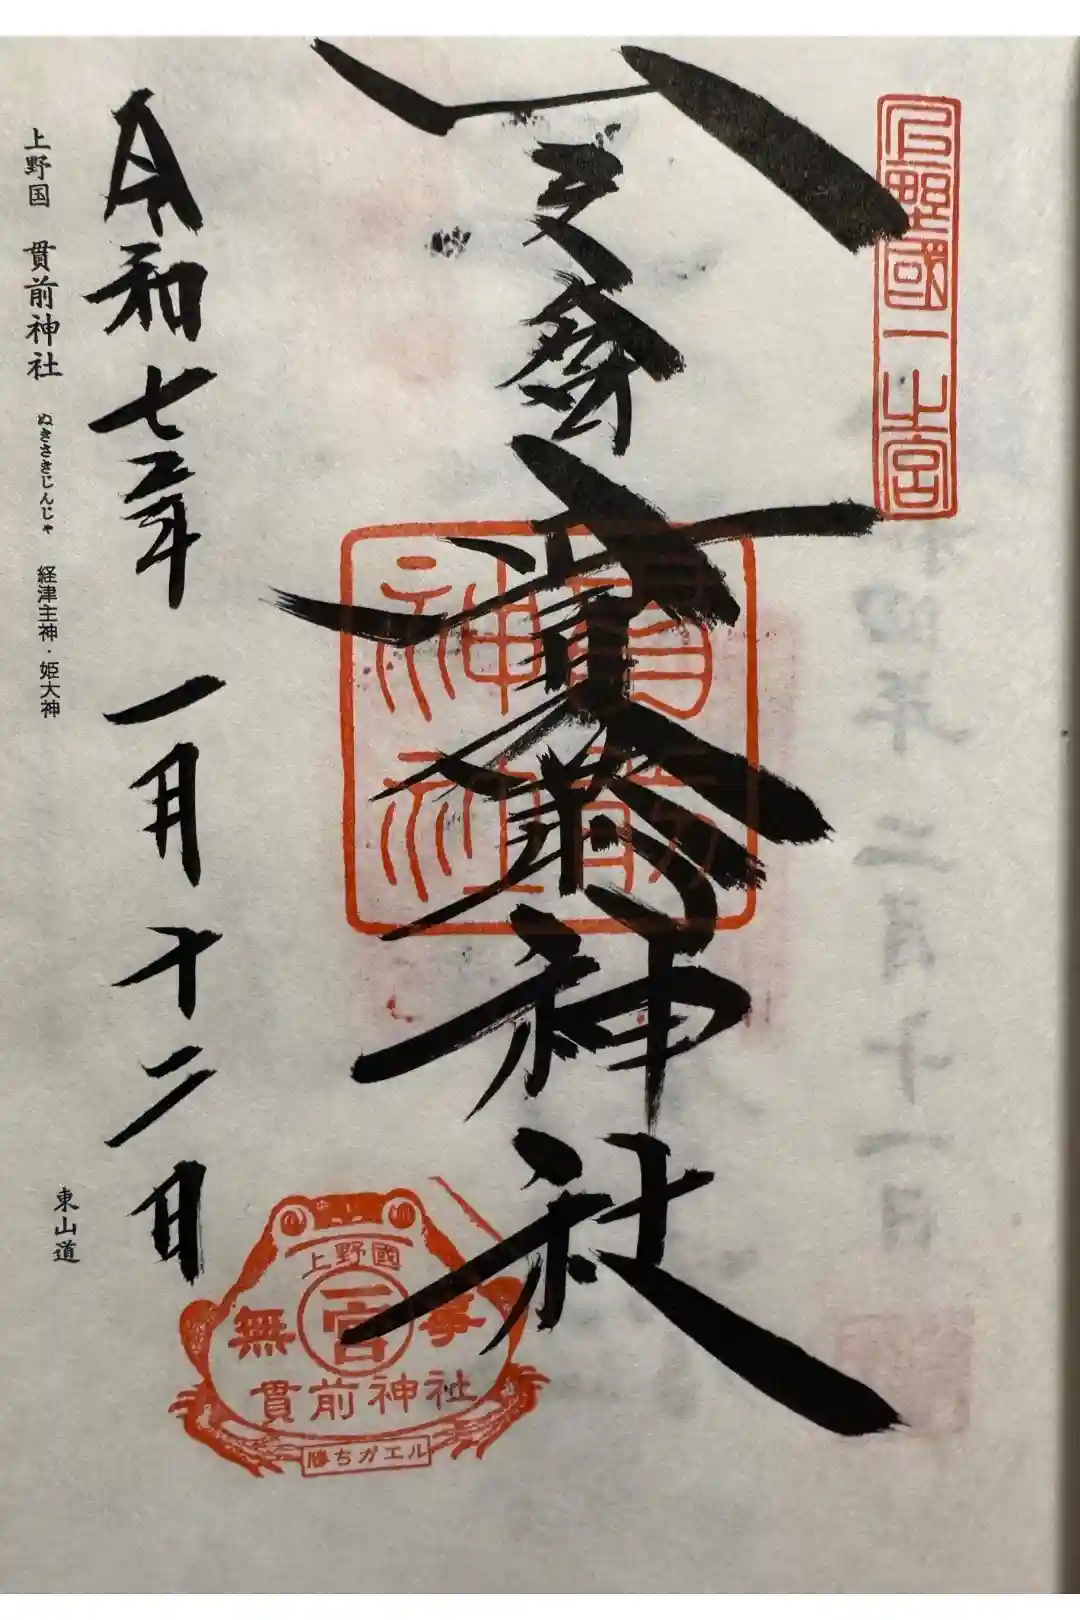 上野國一之宮
貫前神社
貫前神社
令和七年一月十二日
上野國
無事
一宮
貫前神社
勝ちガエル
上野国 貫前神社 ぬきさきじんじゃ 経津主神・姫大神
東山道